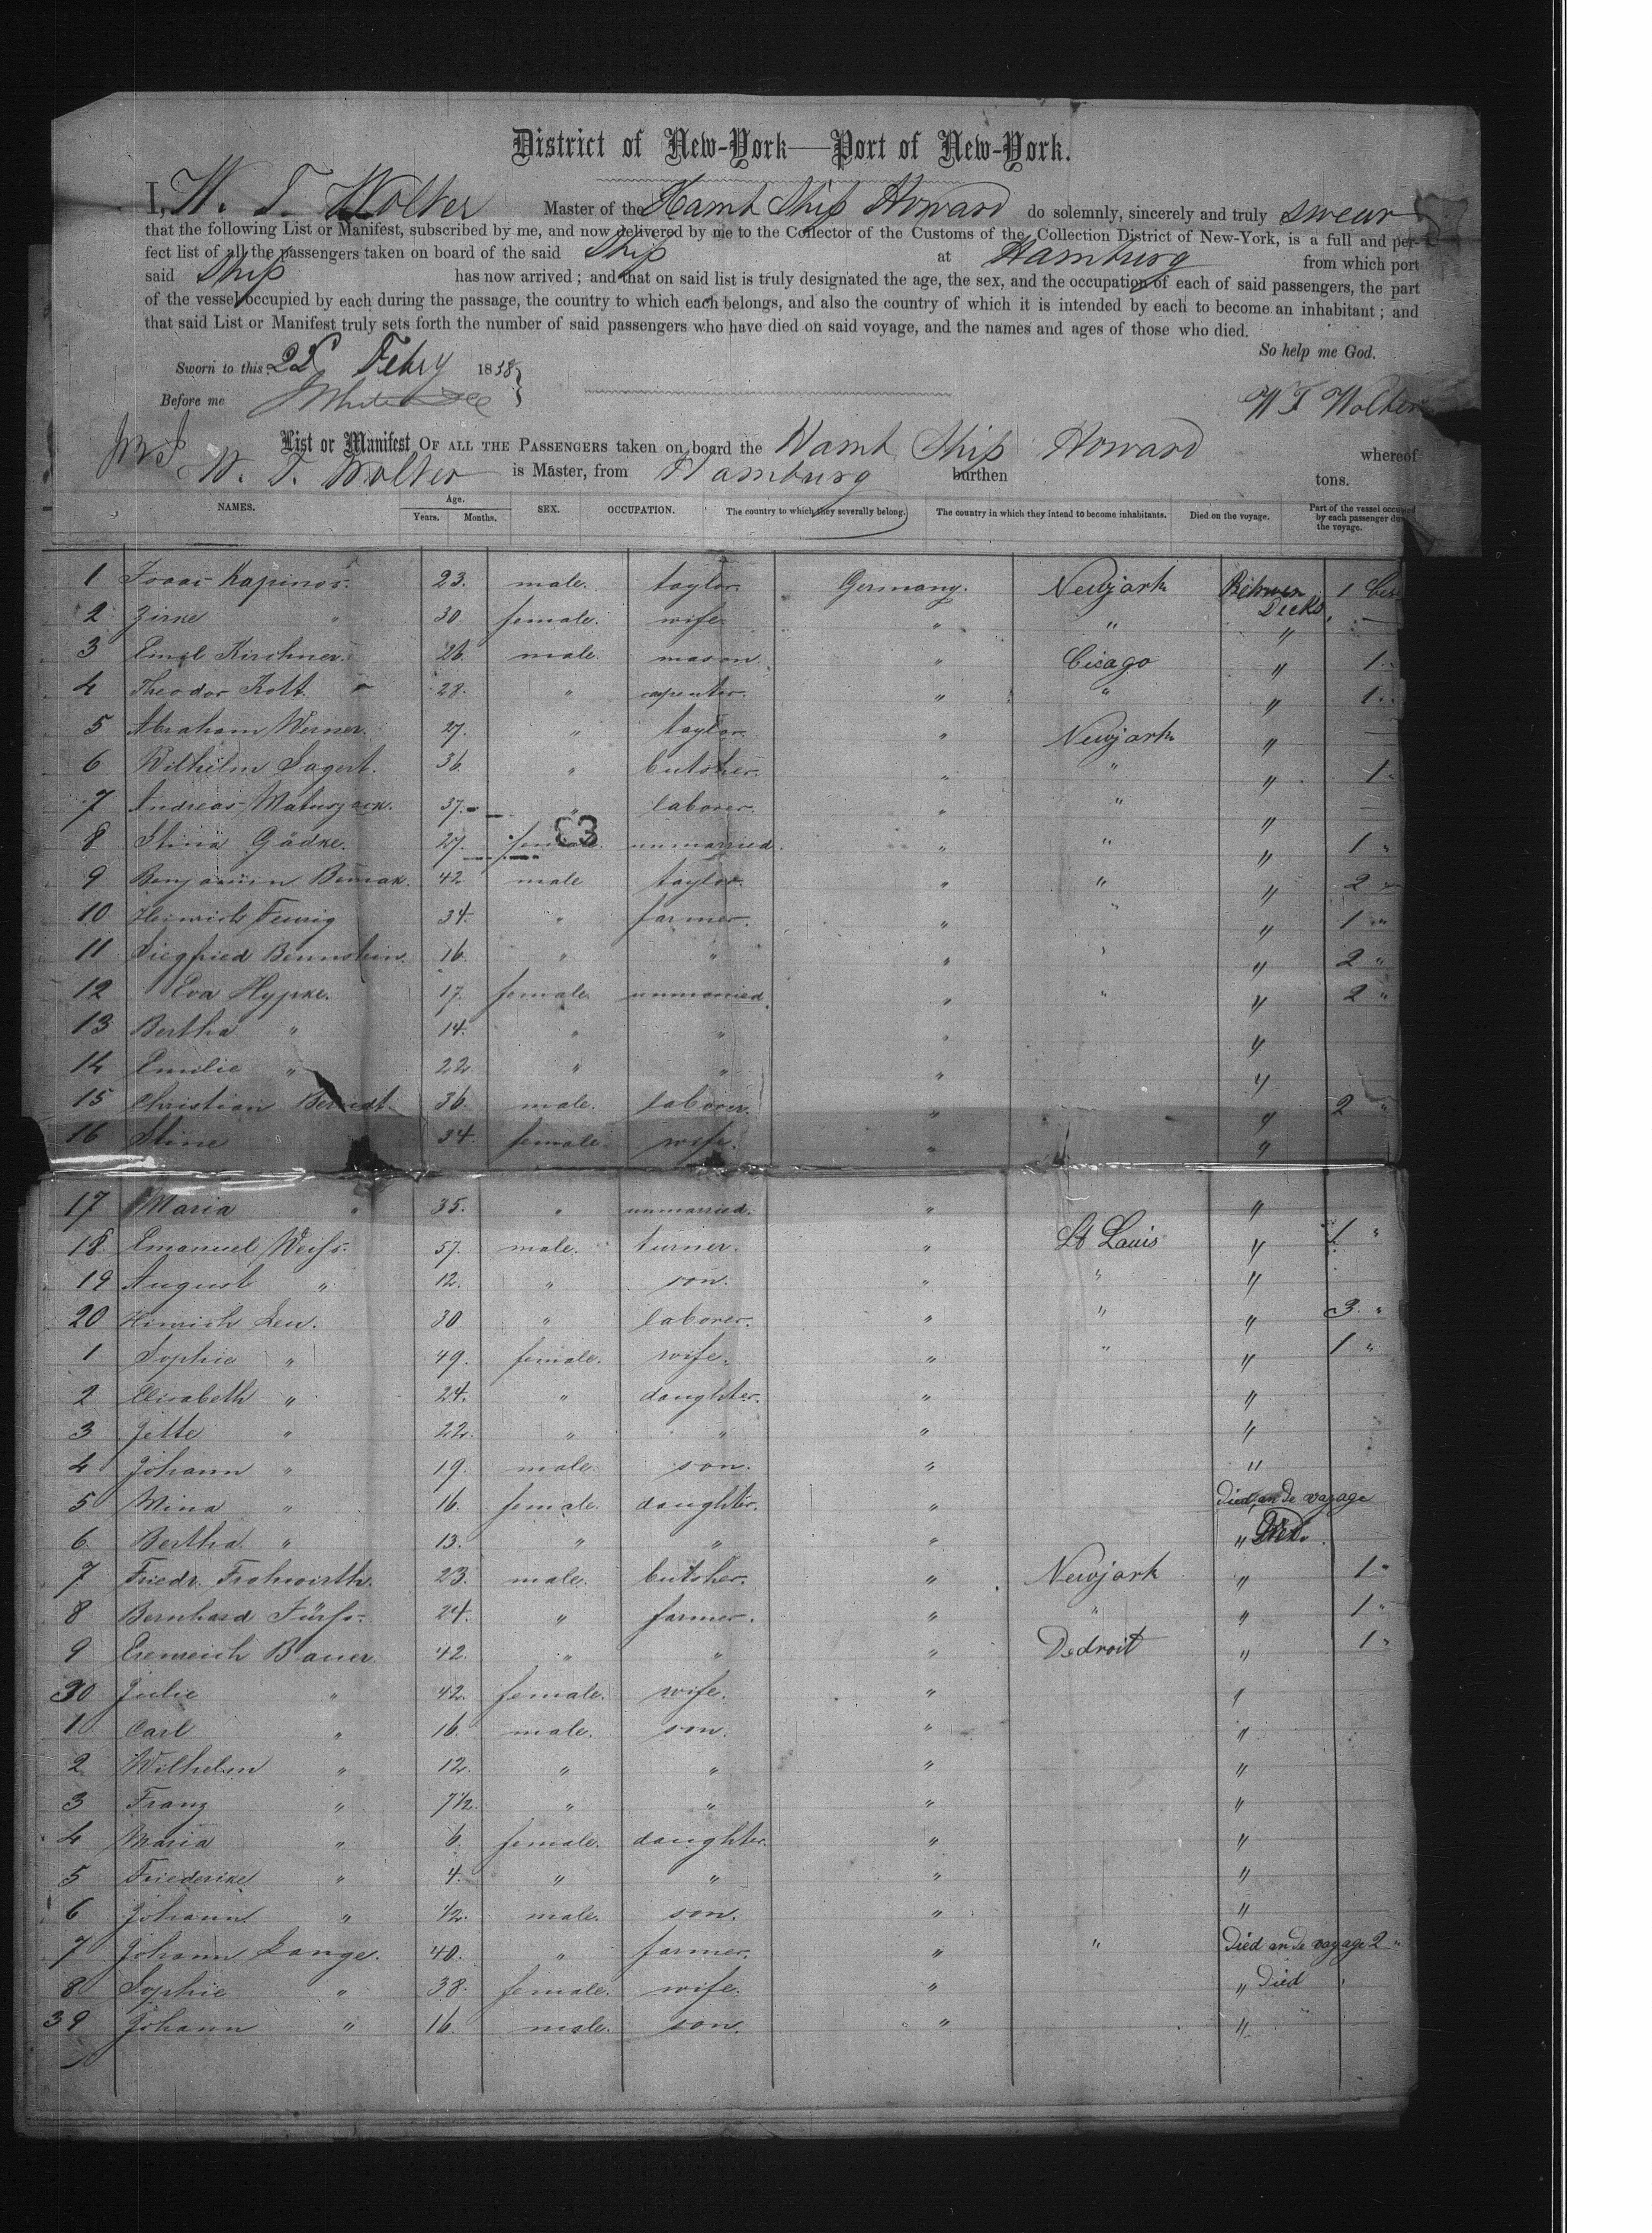 District of New-York—Port of New-York.
I, W. T. Wolter Master of the Hamb Ship Howard do solemnly, sincerely and truly swear
that the following List or Manifest, subscribed by me, and now delivered by me to the Collector of the Customs of the Collection District of New-York, is a full and per-
fect list of all the passengers taken on board of the said Ship at Hamburg from which port
said Ship has now arrived; and that on said list is truly designated the age, the sex, and the occupation of each of said passengers, the part
of the vessel occupied by each during the passage, the country to which each belongs, and also the country of which it is intended by each to become an inhabitant; and
that said List or Manifest truly sets forth the number of said passengers who have died on said voyage, and the names and ages of those who died.
So help me God.
Sworn to this Febry 1858
Before me
W T Wolter
List or Manifest OF ALL THE PASSENGERS taken on board the Hamb Ship Howard whereof
W. T. Wolter is Master, from Hamburg burthen tons.
NAMES. Age. Years. Months. SEX. OCCUPATION. The country to which they severally belong. The country in which they intend to become inhabitants. Died on the voyage. Part of the vessel occupied by each passenger du the voyage.
1 Isaac Kapinos. 23. male. taylor. Germany. Newjork Between Decks 1
2 Zirke " 30. female. wife " " "
3 Emil Kirchner. 26. male. mason. " Cicago " 1 "
4 Theodor Kott 28. " carpenter. " " " 1 "
5 Abraham Werner. 27. " taylor. " Newjork " —
6 Wilhelm Sagert. 36. " butsher. " " " 1 "
7 Andreas Matuszack. 37. " laborer. " " " —
83
8 Stina Gädke. 27. female. unmarried. " " " 1 "
9 Benjamin 42. male taylor. " " " 2 "
10 Heinrich Feurig 34. " farmer. " " " 1 "
11 Siegfried Bernstein. 16. " " " " " 2 "
12 Eva Hypke. 17. female. unmarried. " " " 2 "
13 Bertha " 14. " " " "
14 Emilie " 22. " " " "
15 Christian Berndt. 36. male. laborer. " " 2 "
16 Stine 34. female. wife. " "
17 Maria " 35. " unmarried. " "
18 Emanuel Weiss. 57. male. turner. " St Louis " 1 "
19 August " 12. " son. " " "
20 Hinrich Leu. 30 " laborer. " " " 3 "
1 Sophie " 49. female. wife. " " " 1 "
2 Elisabeth " 24. " daughter. " "
3 Jette " 22. " " " "
4 Johann " 19. male. son. " "
5 Mina " 16. female. daughter. " died an de vagage
6 Bertha " 13. " " " "
7 Friedr. Frohwirth. 23. male. butsher. " Newjork " 1 "
8 Bernhard Fürss. 24. " farmer. " " " 1 "
9 Erenreich Bauer. 42. " " " Dedroit " 1 "
30 Julie " 42. female. wife. " "
1 Carl " 16. male. son. " "
2 Wilhelm " 12. " " " "
3 Franz " 7½. " " " "
4 Maria " 6. female. daughter. " "
5 Friederike " 4. " " " "
6 Johann " ½. male. son. " "
7 Johann Lange. 40. " farmer. " " Died an de vagage 2 "
8 Sophie " 38. female. wife. " " Died
39 Johann " 16. male. son. " "